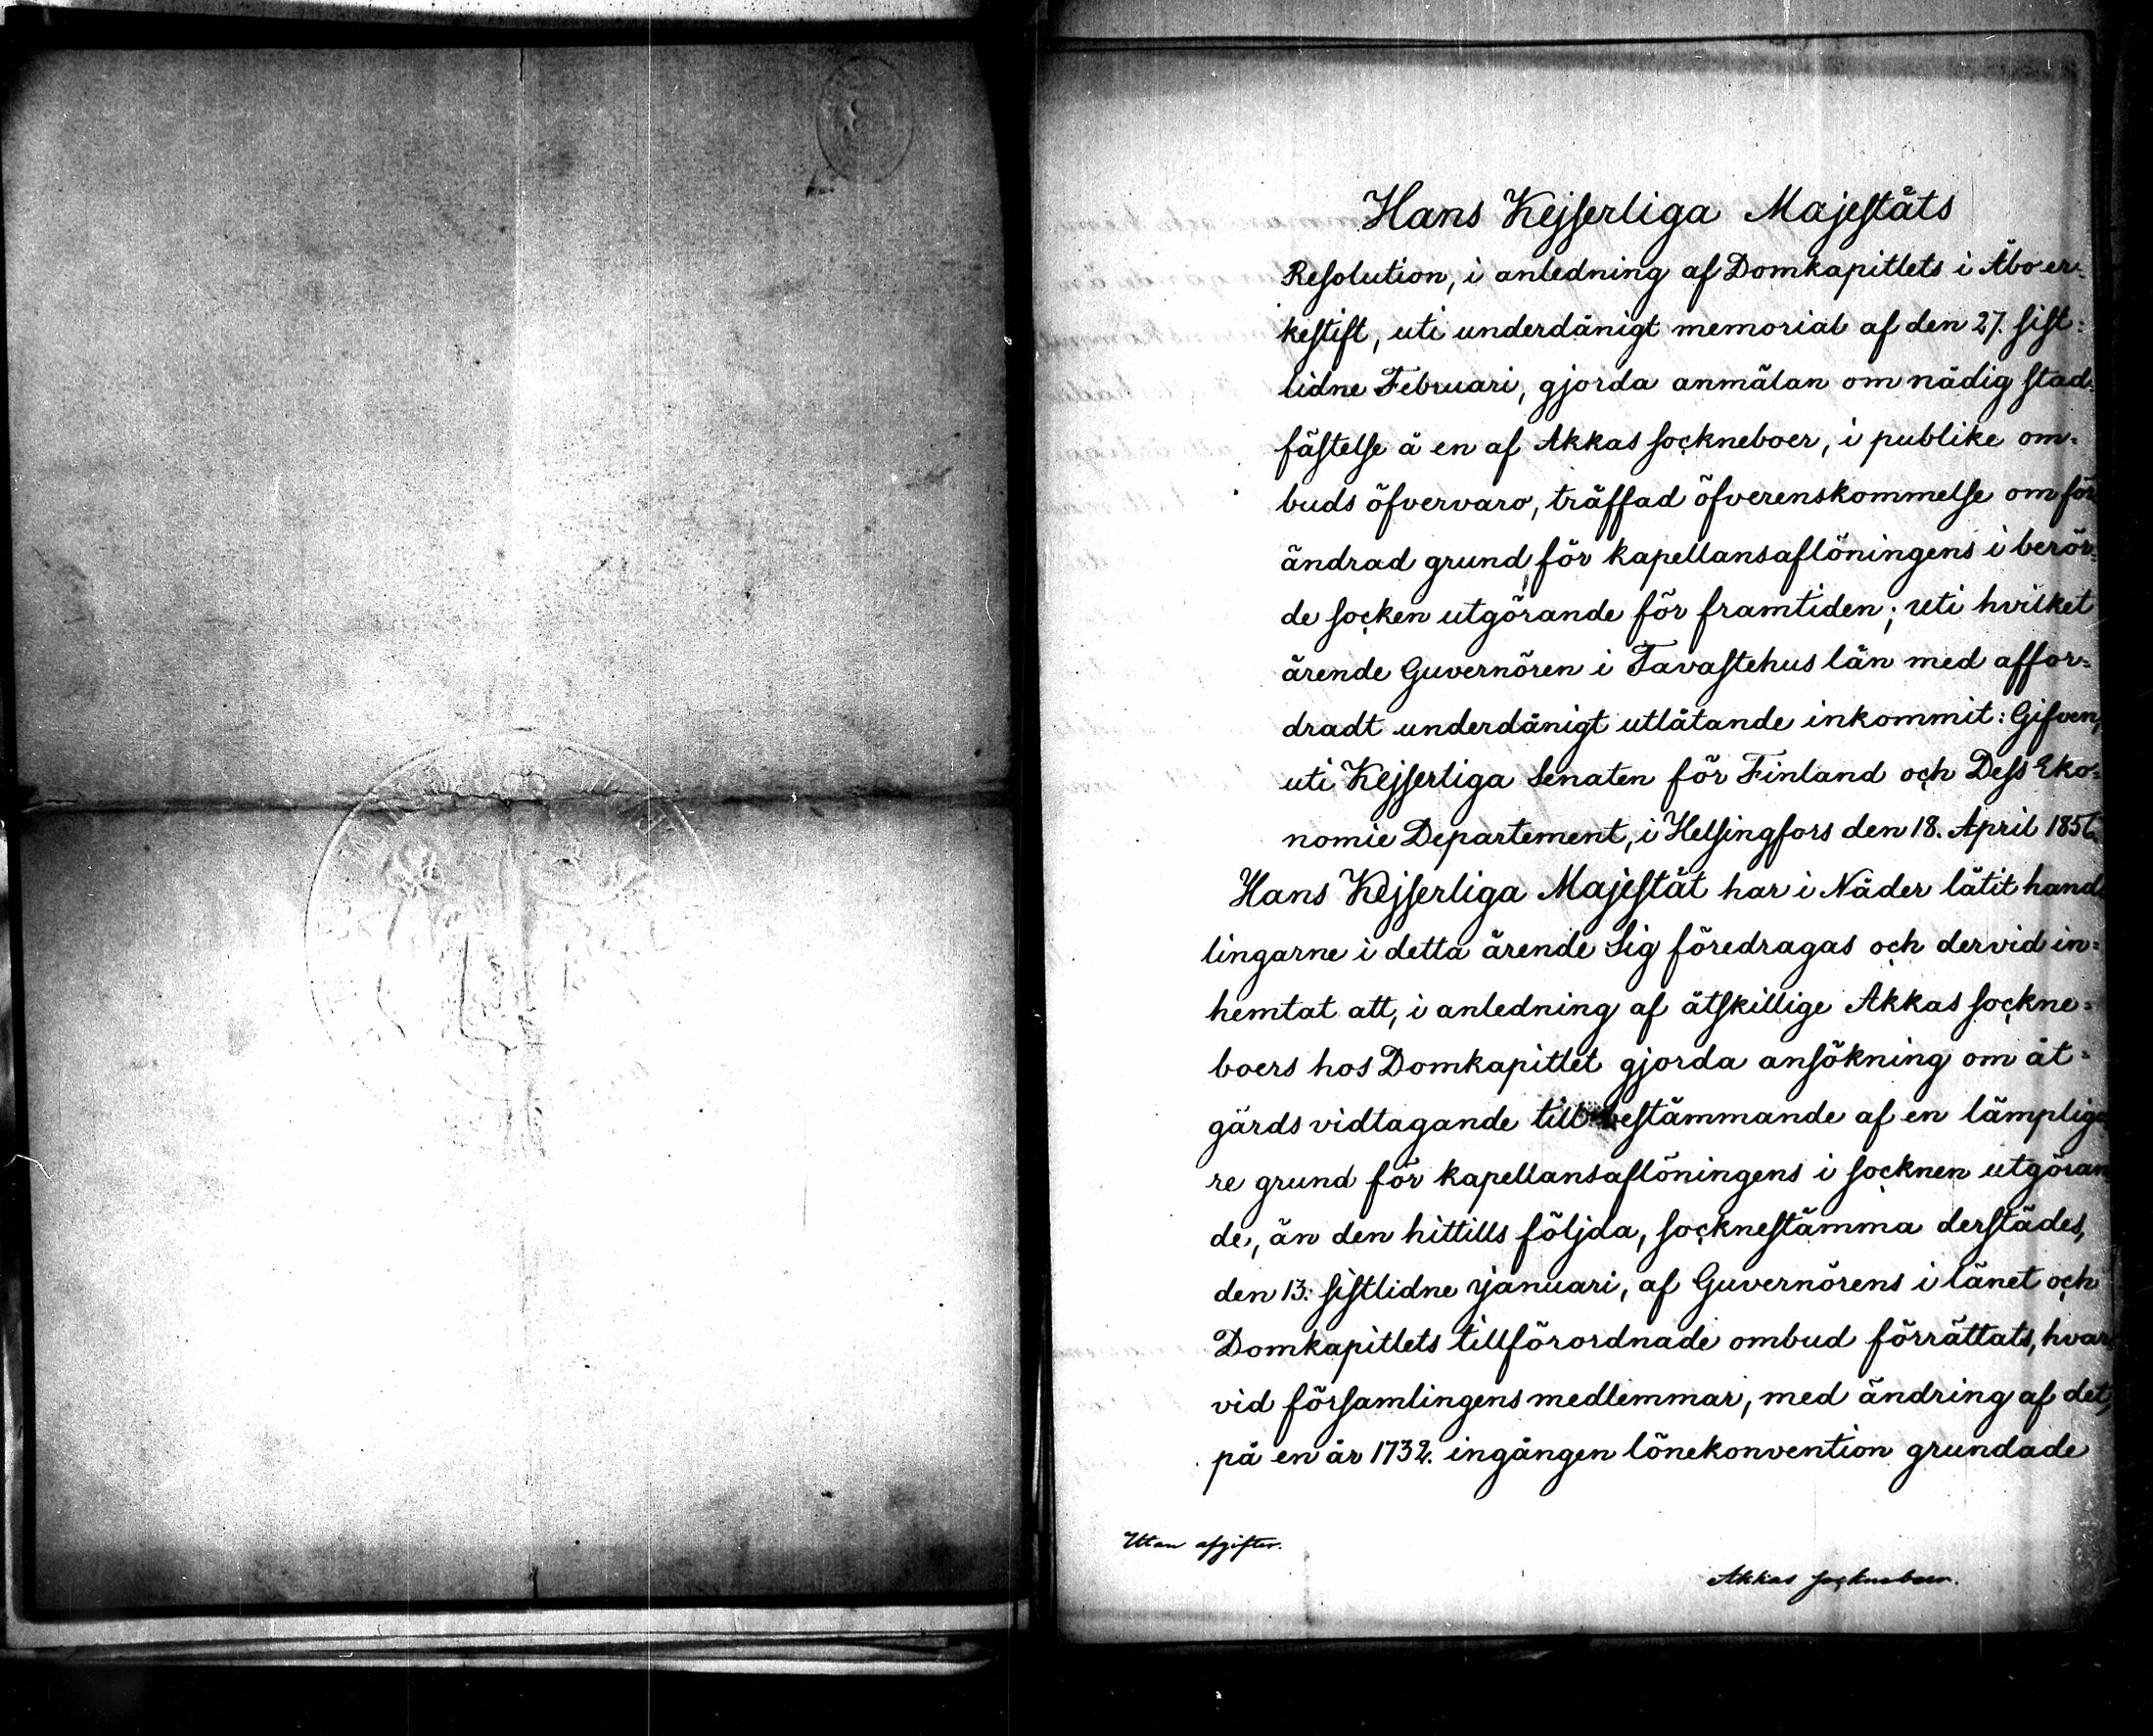 Hans Kejserliga Majestäts
Resolution, i anledning af Domkapitlets i Åbo er=
kestift, uti underdånigt memorial af den 27. sist=
lidne Februari, gjorda anmälan om nådig stad=
fästelse å en af Akkas sockneboer, i publike om=
buds öfvervaro, träffad öfverenskommelse om för
ändrad grund för kapellansaflöningens i berör=
de socken utgörande för framtiden; uti hvilket
ärende Guvernören i Tavastehus län med affor=
dradt underdånigt utlåtande inkommit: Gifven,
uti Kejserliga Senaten för Finland och Dess Eko=
nomie Departement, i Helsingfors den 18. April 1856.
Hans Kejserliga Majestät har i Nåder låtit hand
lingarne i detta ärende Sig föredragas och dervid in=
hemtat att, i anledning af åtskillige Akkas sockne=
boers hos Domkapitlet gjorda ansökning om åt=
gärds vidtagande till bestämmande af en lämpliga
re grund för kapellansaflöningens i socknen utgöran
de, än den hittills följda, socknestämma derstädes,
den 13. sistlidne Januari, af Guvernörens i länet och
Domkapitlets tillförordnade ombud förrättats, hvar
vid församlingens medlemmar, med ändring af det,
på en år 1732. ingången lönekonvention grundade
Utan afgifter.
Akkas sockneboer.